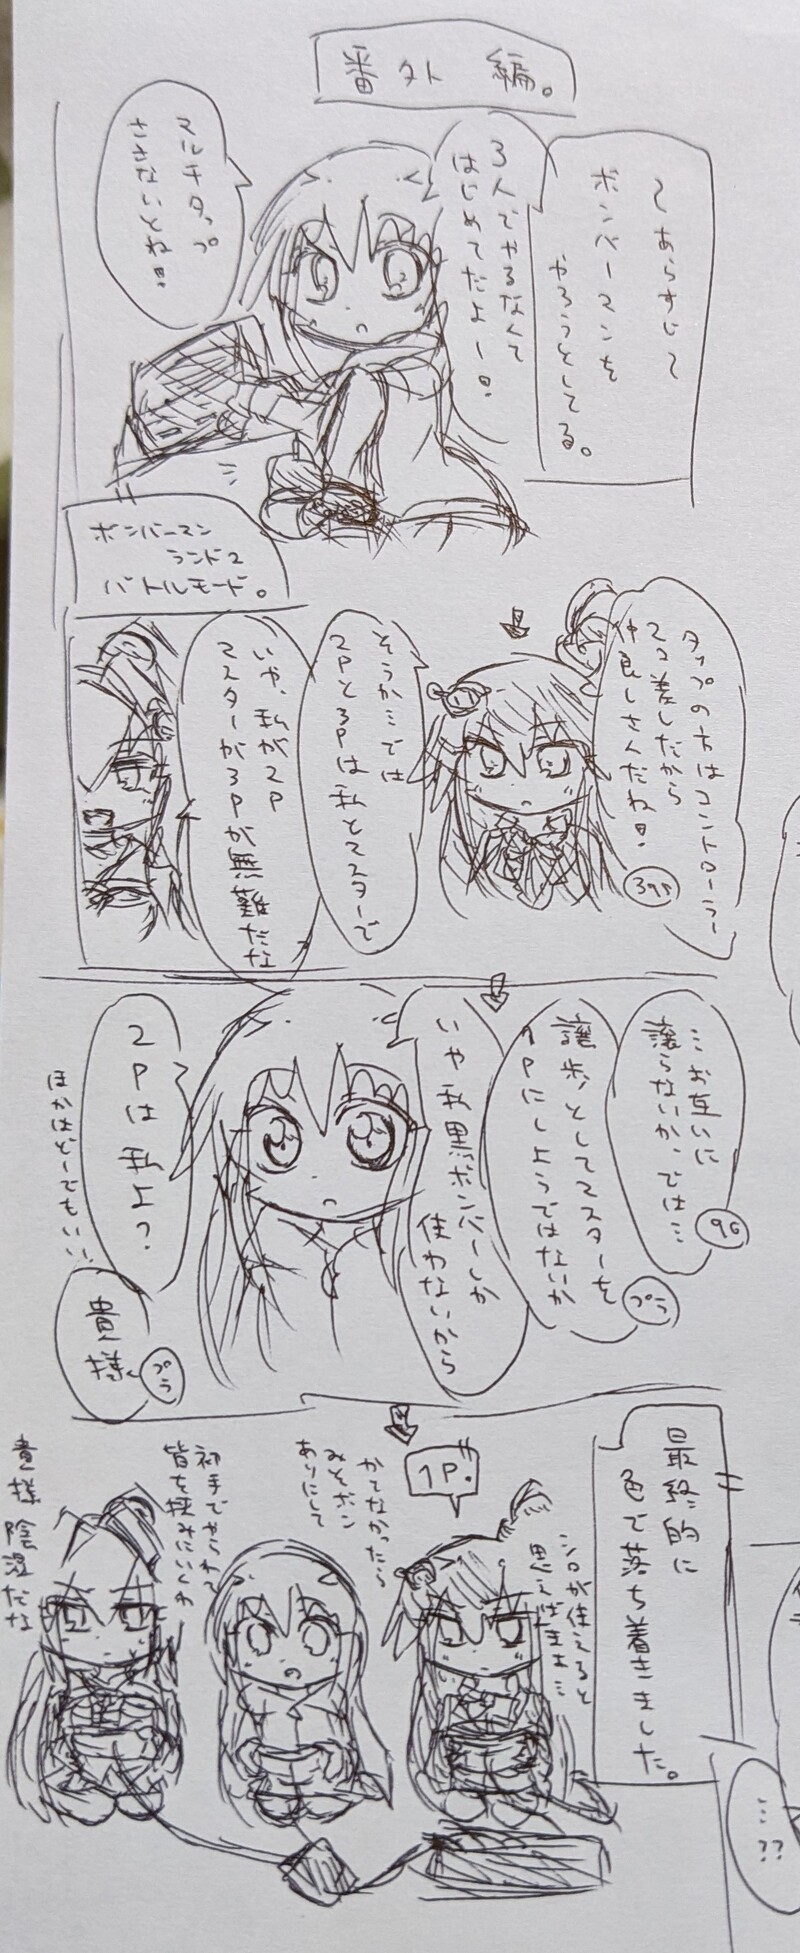 番外編。
〜あらすじ〜
ボンバーマンを
やろうとしてる。
3人でやるなんて
はじめてだよー!
マルチタップ
ささないとね!
ボンバーマン
ランド2
バトルモード。
タップの方はコントローラー
2コ差しだから
仲良しさんだね!
395
そうか…では
2Pと3Pは私とマスターで
いや、私が2P
マスターが3Pが無難だな
…お互いに
譲らないか、では…
96
譲歩としてマスターを
1Pにしようではないか
プラ
いや私黒ボンバーしか
使わないから
2Pは私よ?
ほかはどーでもいい
貴様
プラ
最終的に
色で落ち着きました。
1P。
シロが使えると
思えばまぁ…
かてなかったら
みそボン
ありにして
初手でやられて
皆を挟みにいくわ
貴様陰湿だな
…??